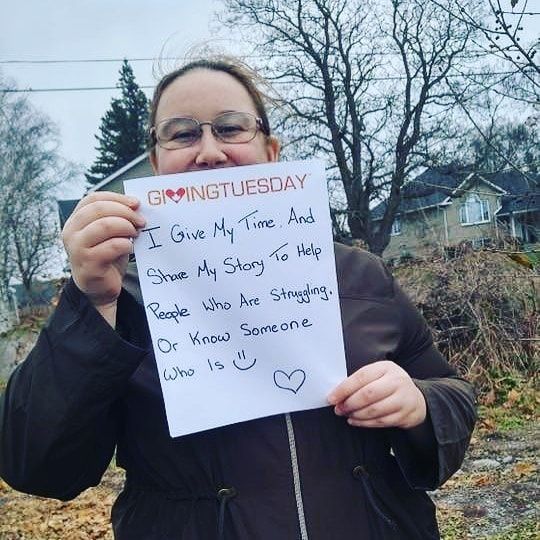 GIVINGTUESDAY
I Give My Time. And
Share My Story To Help
People Who Are Struggling.
Or Know Someone
Who Is